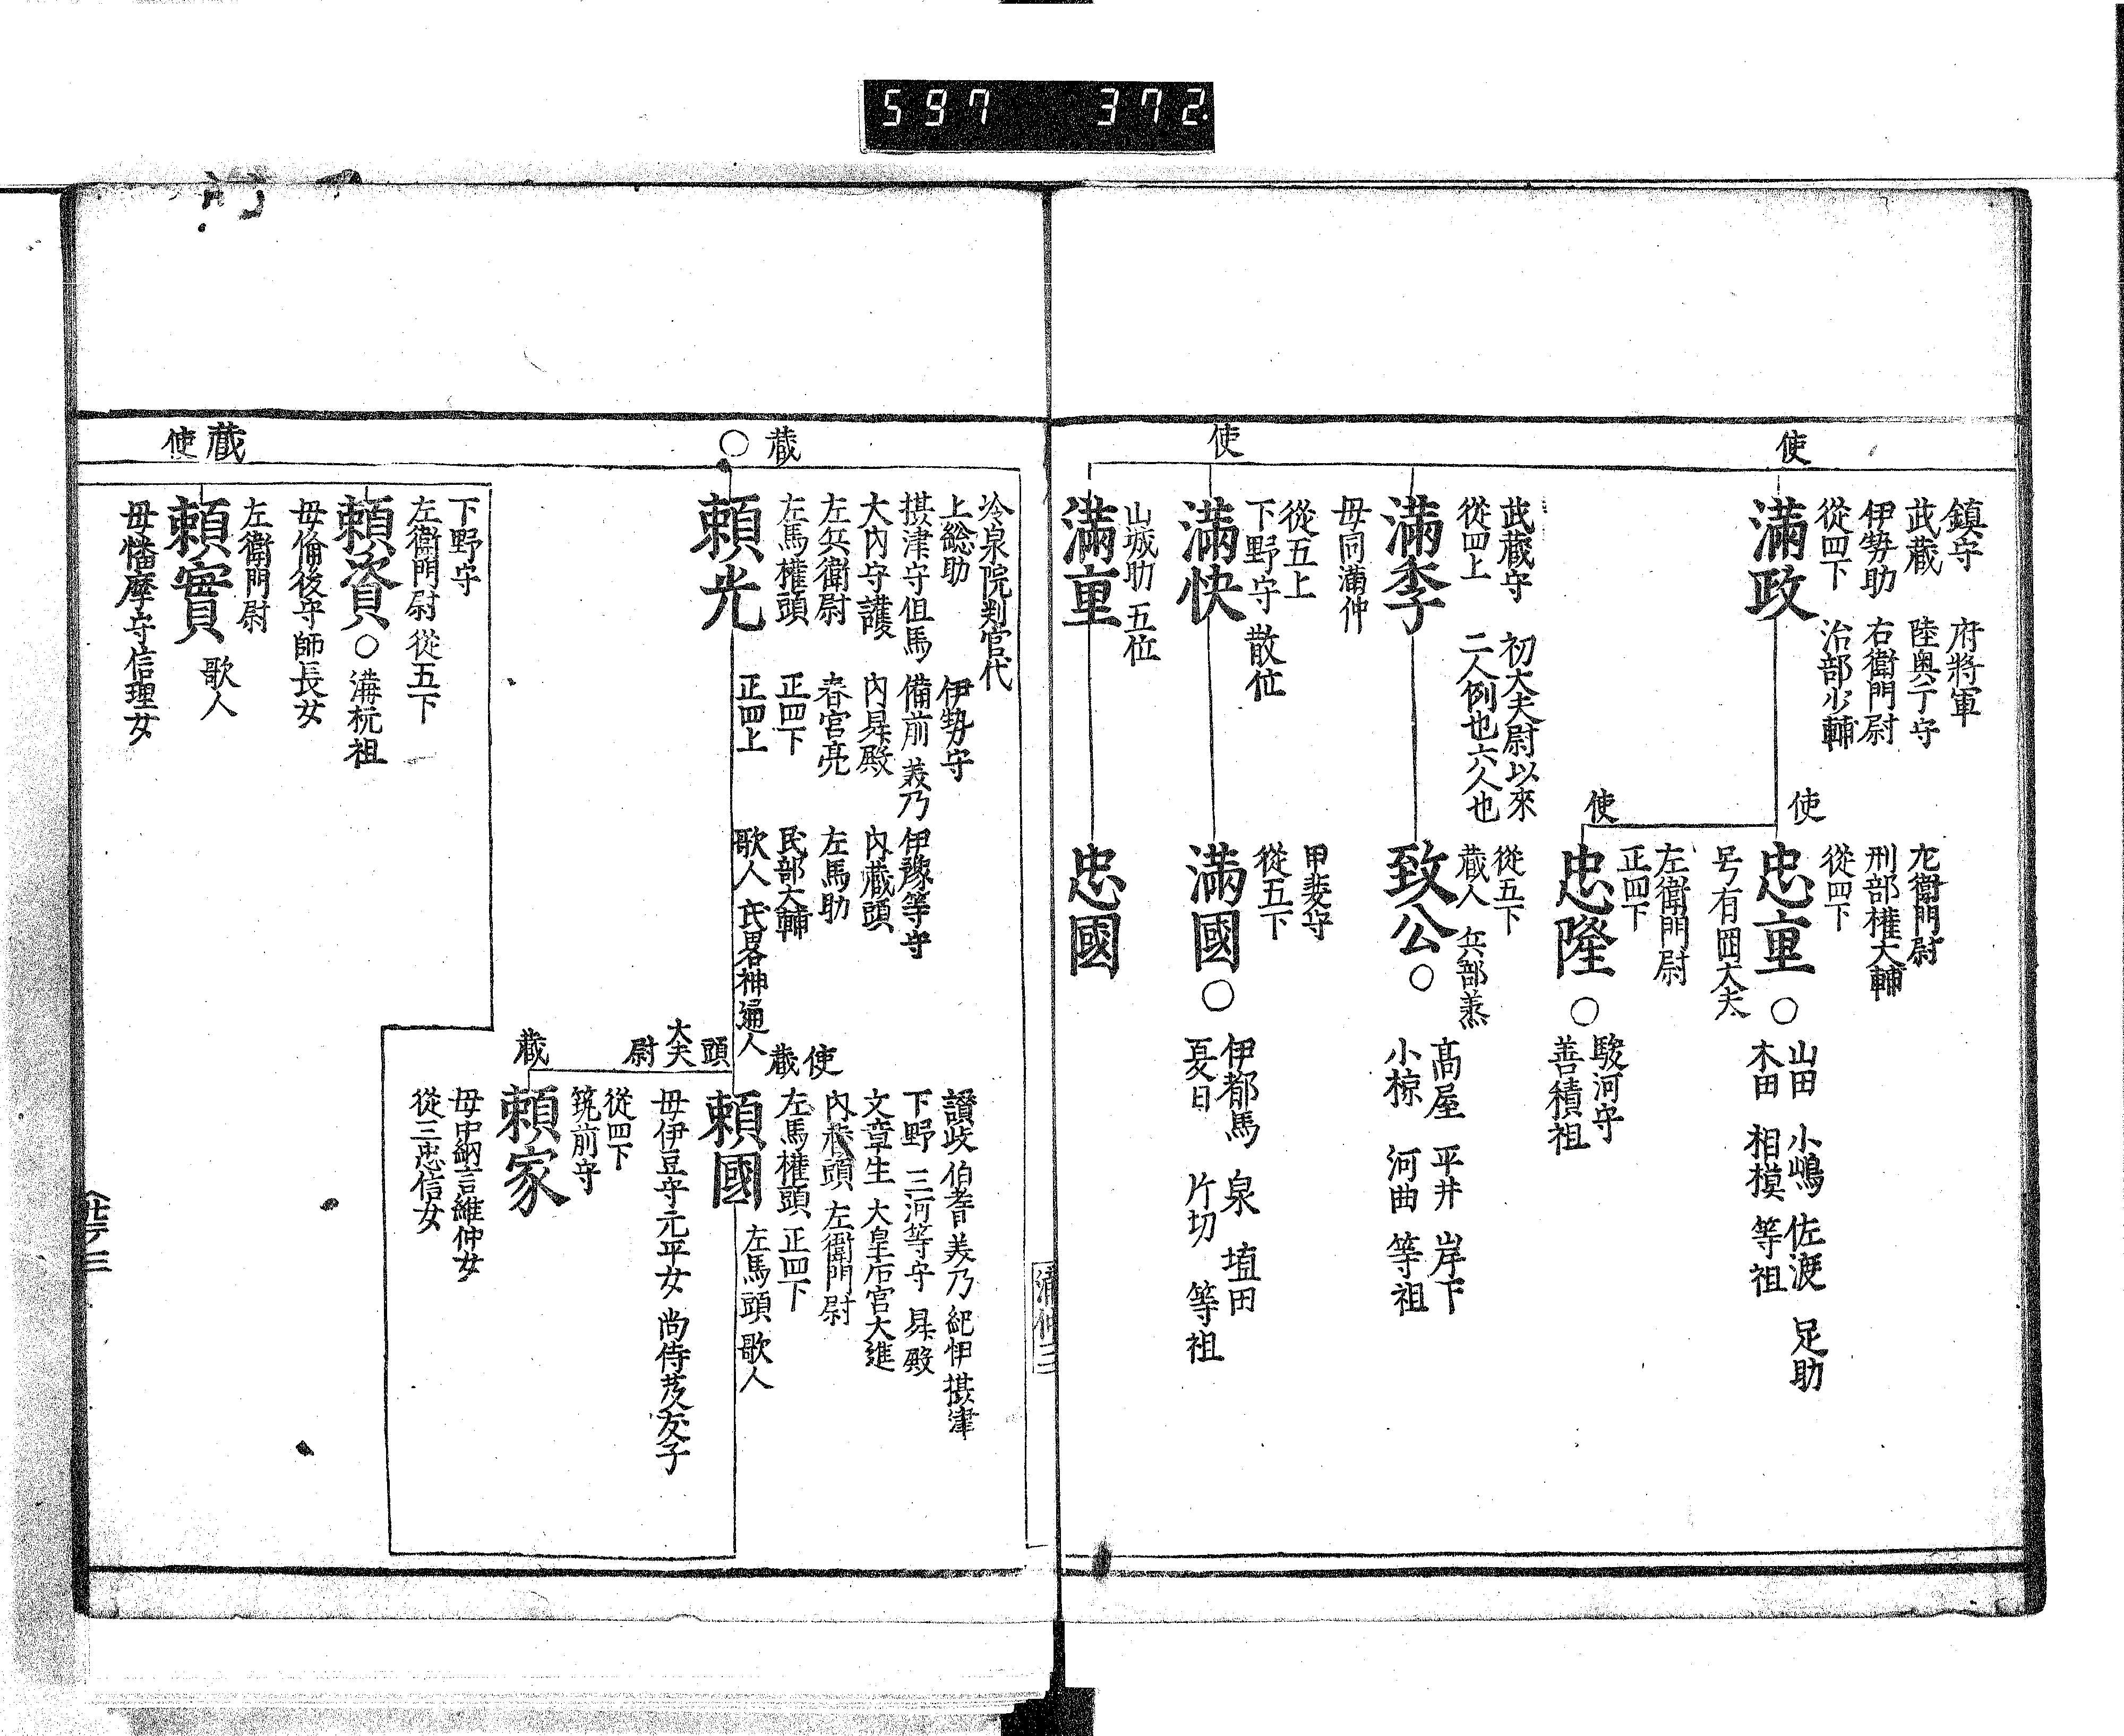 597 372
使
鎮守 府將軍
武藏 陸奥守
伊勢助 右衛門尉
從四下 治部少輔
滿政
使
左衛門尉
刑部權大輔
從四下
忠重
号有田大夫
○
山田 小嶋 佐渡 足助
木田 相模 等祖
使
左衛門尉
正四下
忠隆
○
駿河守
善積祖
武藏守 初大夫尉以來
從四上 二人例也六人也
滿季
母同滿仲
從五下
藏人 兵部丞
致公
○
髙屋 平井 岸下
小椋 河曲 等祖
使
從五上
下野守 散位
滿快
甲斐守
從五下
滿國
○
伊都馬 泉 埴田
夏日 片切 等祖
山城助 五位
滿重
忠國
滿仲三
藏
○
冷泉院判官代
上総助 伊勢守
摂津守但馬 備前 美乃 伊豫等守
大內守護 內昇殿 內藏頭
左兵衛尉 春宮亮 左馬助
左馬權頭 正四下 民部大輔
正四上 歌人 氏畧神通人
頼光
使
藏
頭
大夫
尉
讃岐 伯耆 美乃 紀伊 摂津
下野 三河等守 昇殿
文章生 大皇后宮大進
內藏頭 左衛門尉
左馬權頭 正四下
左馬頭 歌人
頼國
母伊豆守元平女 尚侍友子
藏
從四下
筑前守
頼家
母中納言維仲女
從三忠信女
下野守
左衛門尉 從五下
頼資
○
溝杭祖
母備後守師長女
藏
使
左衛門尉
頼實
歌人
母播摩守信理女